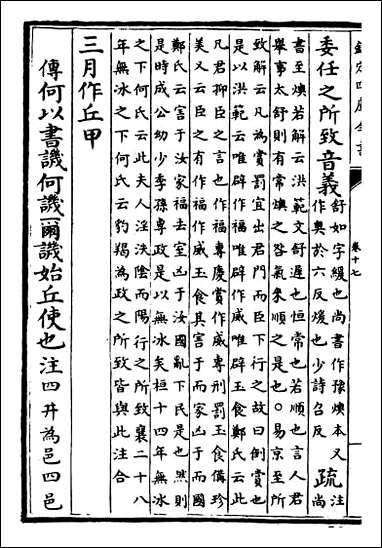 欽定四庫全書
卷十七
委任之所致音義
舒如字緩也尚書作豫燠本又
作奥於六反煖也少詩召反
疏
注
尚
書至燠若解云洪範文舒遲也恒常也若順也言人君
舉事太舒則有常燠之咎氣來順之是也○易京至所
致解云凡為賞罰宜出君門而臣下行之故曰倒賞也
是以洪範云唯辟作福唯辟作威唯辟玉食鄭氏云此
凡君抑臣之言也作福專慶賞作威專刑罰玉食備珍
美又云臣之有作福作威玉食其害于而家凶于而國
鄭氏云害于汝家福去室凶于汝國亂下民是也然則
是時成公幼少季孫專政是以無氷矣桓十四年無氷
之下何氏云此夫人淫泆陰而陽行之所致襄二十八
年無氷之下何氏云豹羯為政之所致皆與此注合
三月作丘甲
傳何以書譏何譏爾譏始丘使也注四井為邑四邑